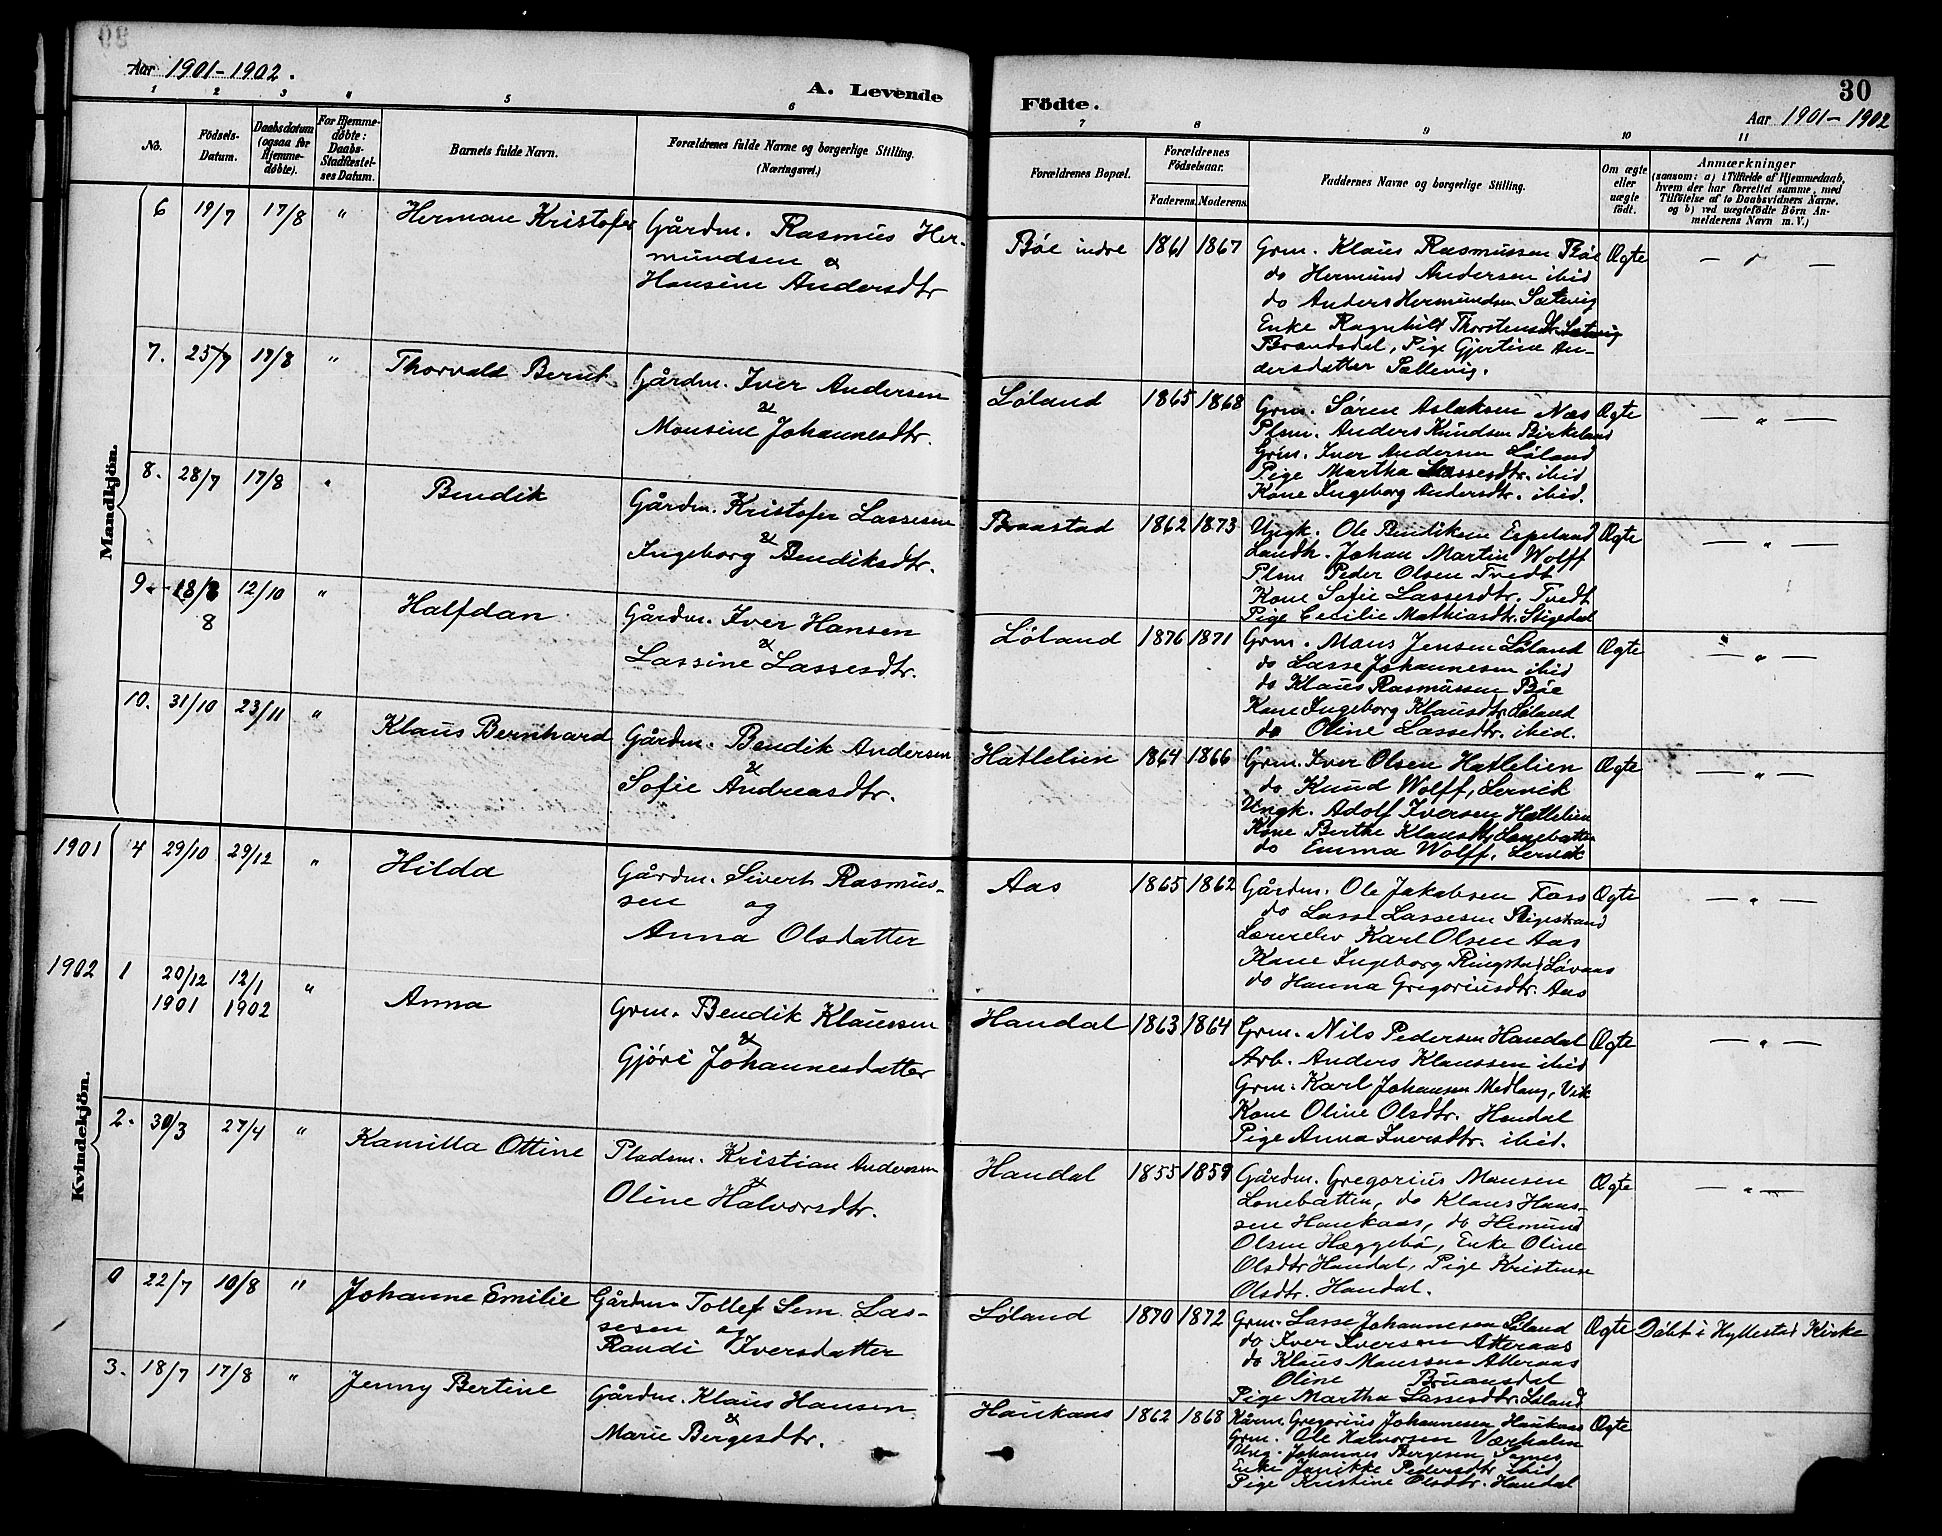 Aar 1901-1902.
A. Levende Födte.
30
Aar 1901-1902
1 2 3 4 5 6 7 8 9 10 11
No.
Födsels-Datum.
Daabsdatum (ogsaa for Hjemmedøbte).
For Hjemmedøbte: Daabs-Stadfæstelses Datum.
Barnets fulde Navn.
Forældrenes fulde Navne og borgerlige Stilling. (Næringsvei.)
Forældrenes Bopæl.
Forældrenes Födselsaar.
Faderens. Moderens.
Faddernes Navne og borgerlige Stilling.
Om ægte eller uægte født.
Anmærkninger
(saasom: a) i Tilfælde af Hjemmedaab, hvem der har forrettet samme, med Tilföielse af to Daabsvidners Navne, og b) ved uægtefödte Börn Anmelderens Navn m. V.)
Mandkjön.
6 19/7 17/8 " Herman Kristofer
Gårdm. Rasmus Her-
mundsen &
Hansine Andersdtr
Bøe indre 1861 1867
Grm. Klaus Rasmussen Bøe
do Hermund Andersen ibid
do Anders Hermundsen Sætevig
Enke Ragnhild Thorstensdtr
Brandsdal, Pige Gjertine An-
dersdatter
Ægte — " —
7. 25/7 19/8 " Thorvald Bernt
Gårdm. Iver Andersen
&
Monsine Johannesdtr.
Løland 1865 1868
Grm. Søren Aslaksen Næs
Plsm. Anders Knudsen Birkeland
Grm. Iver Andersen Løland
Pige Martha Lassesdtr. ibid
Kone Ingeborg Andersdtr. ibid.
Ægte — " —
8. 28/7 17/8 " Bendik
Gårdm. Kristofer Lassesen
&
Ingeborg Bendiksdtr.
Braastad 1862 1873
Ungk. Ole Bendiksen Espeland
Landh. Johan Martin Wolff
Plsm Peder Olsen Tvedt
Kone Sofie Lassesdtr. Tvedt
Pige Cecilie Mathiasdtr. Stigedal
Ægte — " —
9. 18/8 12/10 " Halfdan
8
Gårdm. Iver Hansen
&
Lassine Lassesdtr.
Løland 1876 1871
Grm. Mons Jensen Løland
do Lasse Johannesen ibid
do Klaus Rasmussen Bøe
Kone Ingeborg Klausdtr. Løland
do Oline Lassedtr. ibid.
Ægte — " —
10. 31/10 23/11 " Klaus Bernhard
Gårdm. Bendik Andersen
&
Sofie Andreasdtr.
Hatlelien 1864 1866
Grm. Iver Olsen Hatlelien
do Knud Wolff, Lervik
Ungk. Adolf Iversen Hatlelien
Kone Berthe Klausdtr. Lonebatten
do Emma Wolff. Lervik
Ægte — " —
Kvindekjön.
1901 4 29/10 29/12 " Hilda
Gårdm. Sivert Rasmus-
sen og
Anna Olsdatter
Aas 1865 1862
Gårdm. Ole Jakobsen Foss
do Lasse Lassesen Stigestrand
Lærerelev Karl Olsen Aas
Kone Ingeborg Ringstad Løvaas
do Hanna Gregoriusdtr. Aas
Ægte — " —
1902 1 20/12 1901 12/1 1902 " Anna
Grm. Bendik Klaussen
&
Gjøri Johannesdatter
Handal 1863 1864
Grm. Nils Pedersen Handal
Arb. Anders Klaussen ibid
Grm. Karl Johansen Medlang, Vik
Kone Oline Olsdtr. Handal
Pige Anna Iversdtr. ibid.
Ægte — " —
2. 30/3 27/4 " Kamilla Ottine
Pladsm. Kristian Andersen
&
Oline Halvorsdtr.
Handal 1855 1859
Gårdm. Gregorius Monsen
Lonebatten, do Klaus Hans-
sen Haukaas, do Hermund
Olsen Hæggebø, Enke Oline
Olsdtr Handal, Pige Kristense
Olsdtr. Handal.
Ægte — " —
0 22/7 10/8 " Johanne Emilie
Gårdm. Tollef Sem. Las-
sesen og
Randi Iversdatter
Løland 1870 1872
Grm. Lasse Johannesen Løland
do Iver Iversen Atteraas
do Klaus Monssen Atteraas
Oline Bruansdal
Pige Martha Lassesdtr. Løland
Ægte Døbt i Hyllestad Kirke
3. 18/7 17/8 " Jenny Bertine
Gårdm. Klaus Hansen
&
Marie Bergesdtr.
Haukaas 1862 1868
Kårm. Gregorius Johannesen Haukaas
Grm. Ole Halvorsen Værholm
Ung. Johannes Bergesen
Enke Jarikke Pedersdtr ibid
Pige Kristine Olsdtr. Handal
Ægte